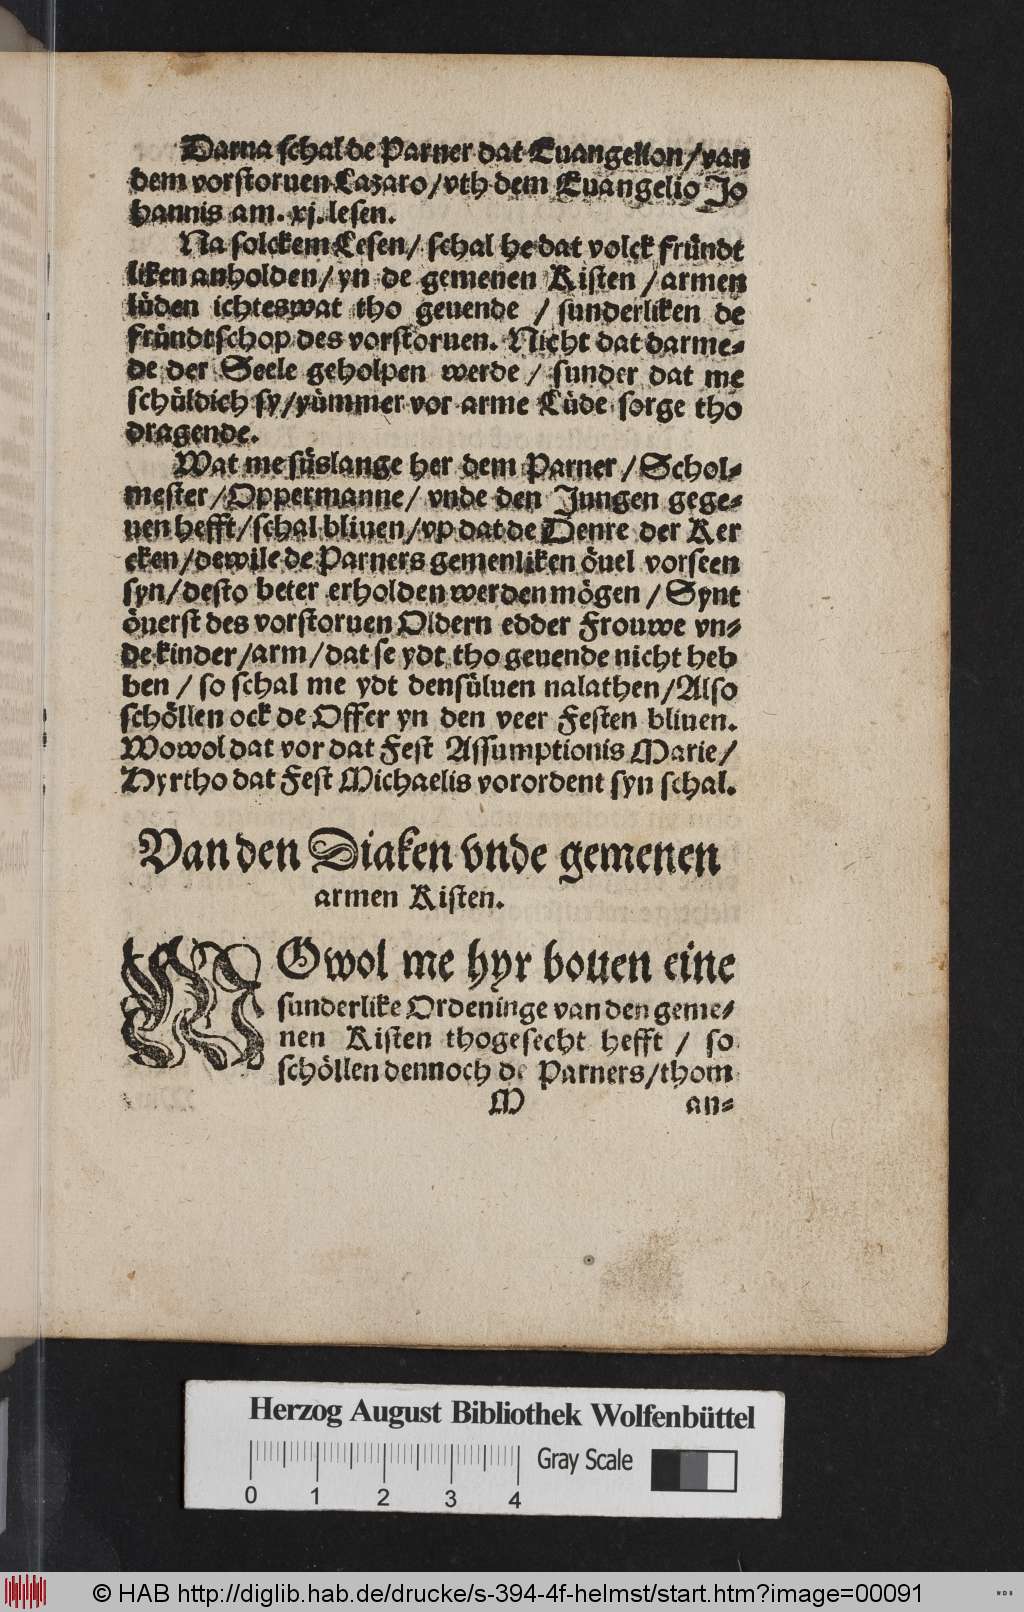 Darna schal de Parner dat Euangelion / van
dem vorstoruen Lazaro / vth dem Euangelio Jo
hannis am. xj. lesen.
Na solckem Lesen / schal he dat volck fründt
liken anholden / yn de gemenen Kisten / armen
lüden ichteswat tho geuende / sunderliken de
fründtschop des vorstoruen. Nicht dat darme-
de der Seele geholpen werde / sunder dat me
schüldich sy / yümmer vor arme Lüde sorge tho
dragende.
Wat me süslange her dem Parner / Schol-
mester / Oppermanne / vnde den Jungen gege-
uen hefft / schal bliuen / vp dat de Denre der Ker
cken / dewile de Parners gemenliken öuel vorseen
syn / desto beter erholden werden mögen / Synt
öuerst des vorstoruen Oldern edder Frouwe vn-
de kinder / arm / dat se ydt tho geuende nicht heb
ben / so schal me ydt densüluen nalathen / Also
schöllen ock de Offer yn den veer Festen bliuen.
Wowol dat vor dat Fest Assumptionis Marie /
Hyrtho dat Fest Michaelis vorordent syn schal.
Van den Diaken vnde gemenen
armen Kisten.
WOwol me hyr bouen eine
sunderlike Ordeninge van den geme-
nen Kisten thogesecht hefft / so
schöllen dennoch de Parners / thom
M an-
Herzog August Bibliothek Wolfenbüttel
Gray Scale
0 1 2 3 4
© HAB http://diglib.hab.de/drucke/s-394-4f-helmst/start.htm?image=00091